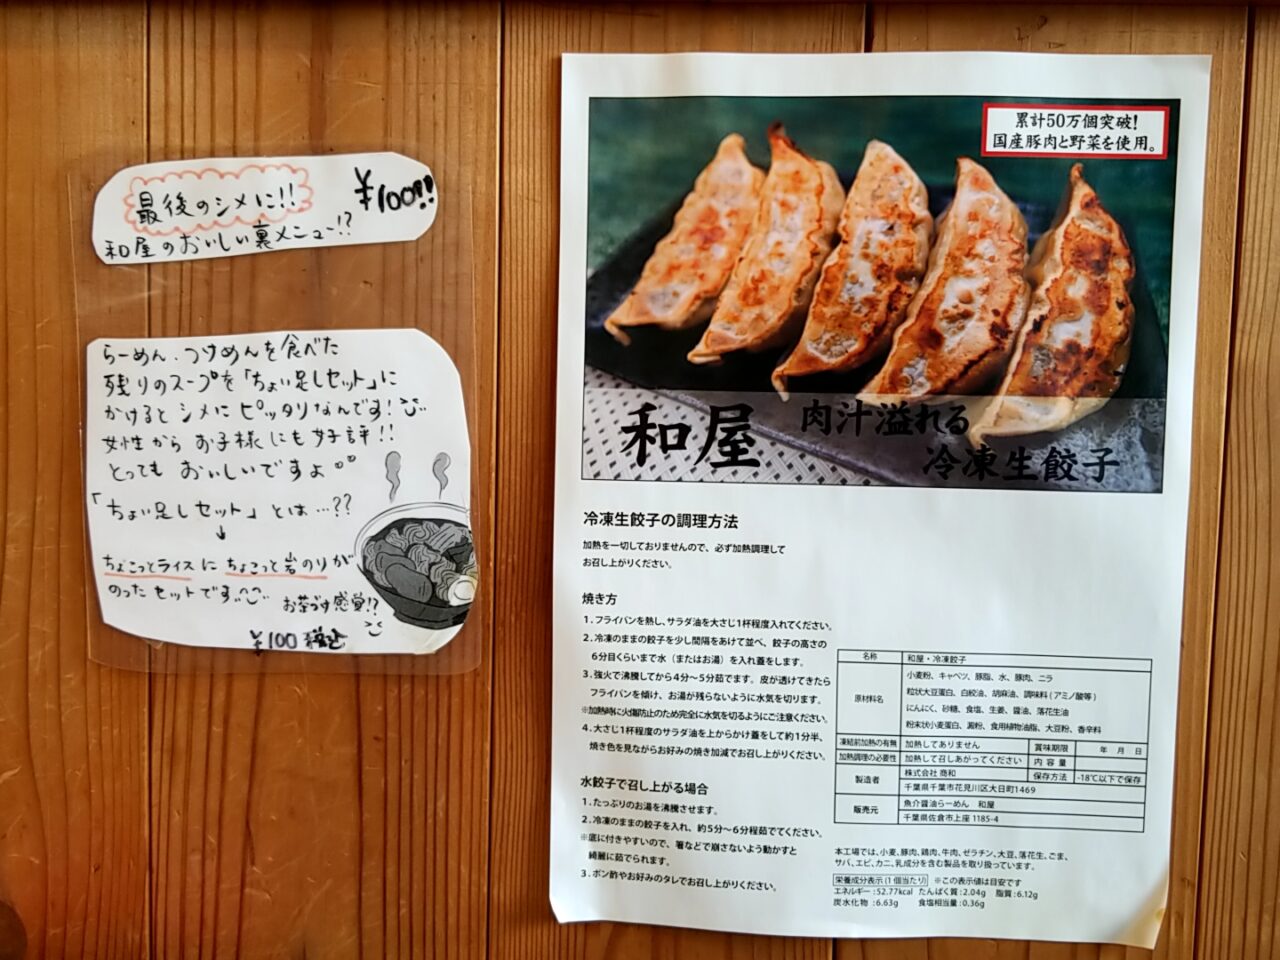 最後のシメに!!
¥100!!
和屋のおいしい裏メニュー!?
らーめん、つけめんを食べた
残りのスープを「ちょい足しセット」に
かけるとシメにピッタリなんです!
女性からお子様にも好評!!
とってもおいしいですよ
「ちょい足しセット」とは…??
↓
ちょこっとライスにちょこっと岩のりが
のったセットです
お茶づけ感覚!?
¥100 税込
累計50万個突破!
国産豚肉と野菜を使用。
和屋
肉汁溢れる
冷凍生餃子
冷凍生餃子の調理方法
加熱を一切しておりませんので、必ず加熱調理して
お召し上がりください。
焼き方
1.フライパンを熱し、サラダ油を大さじ1杯程度入れてください。
2.冷凍のままの餃子を少し間隔をあけて並べ、餃子の高さの
6分目くらいまで水（またはお湯）を入れ蓋をします。
3.強火で沸騰してから4分〜5分茹でます。皮が透けてきたら
フライパンを傾け、お湯が残らないように水気を切ります。
※加熱時に火傷防止のため完全に水気を切るようにご注意ください。
4.大さじ1杯程度のサラダ油を上からかけ蓋をして約1分半、
焼き色を見ながらお好みの焼き加減でお召し上がりください。
水餃子で召し上がる場合
1.たっぷりのお湯を沸騰させます。
2.冷凍のままの餃子を入れ、約5分〜6分程茹でてください。
※底に付きやすいので、箸などで崩さないよう動かすと
綺麗に茹でられます。
3.ポン酢やお好みのタレでお召し上がりください。
名称 和屋・冷凍餃子
原材料名
小麦粉、キャベツ、豚脂、水、豚肉、ニラ
粒状大豆蛋白、白絞油、胡麻油、調味料(アミノ酸等)
にんにく、砂糖、食塩、生姜、醤油、落花生油
粉末状小麦蛋白、澱粉、食用植物油脂、大豆粉、香辛料
凍結前加熱の有無 加熱してありません 賞味期限 年 月 日
加熱調理の必要性 加熱して召しあがってください 内容量
製造者 株式会社 商和 保存方法 -18℃以下で保存
千葉県千葉市花見川区大日町1469
販売元 魚介醤油らーめん 和屋
千葉県佐倉市上座1185-4
本工場では、小麦、豚肉、鶏肉、牛肉、ゼラチン、大豆、落花生、ごま、
サバ、エビ、カニ、乳成分を含む製品を取り扱っています。
栄養成分表示(1個当たり) ※この表示値は目安です
エネルギー:52.77kcal たんぱく質:2.04g 脂質:6.12g
炭水化物:6.63g 食塩相当量:0.36g